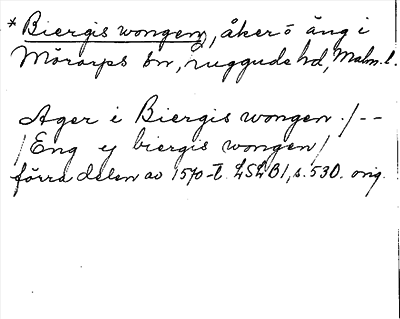 * Biergis wongen, åker o äng i
Mörarps sn, Luggude hd, Malm. l.
Ager i Biergis wongen./--
/Eng ej biergis wongen/
förra delen av 1570-t. LSLB1, s. 530. orig.